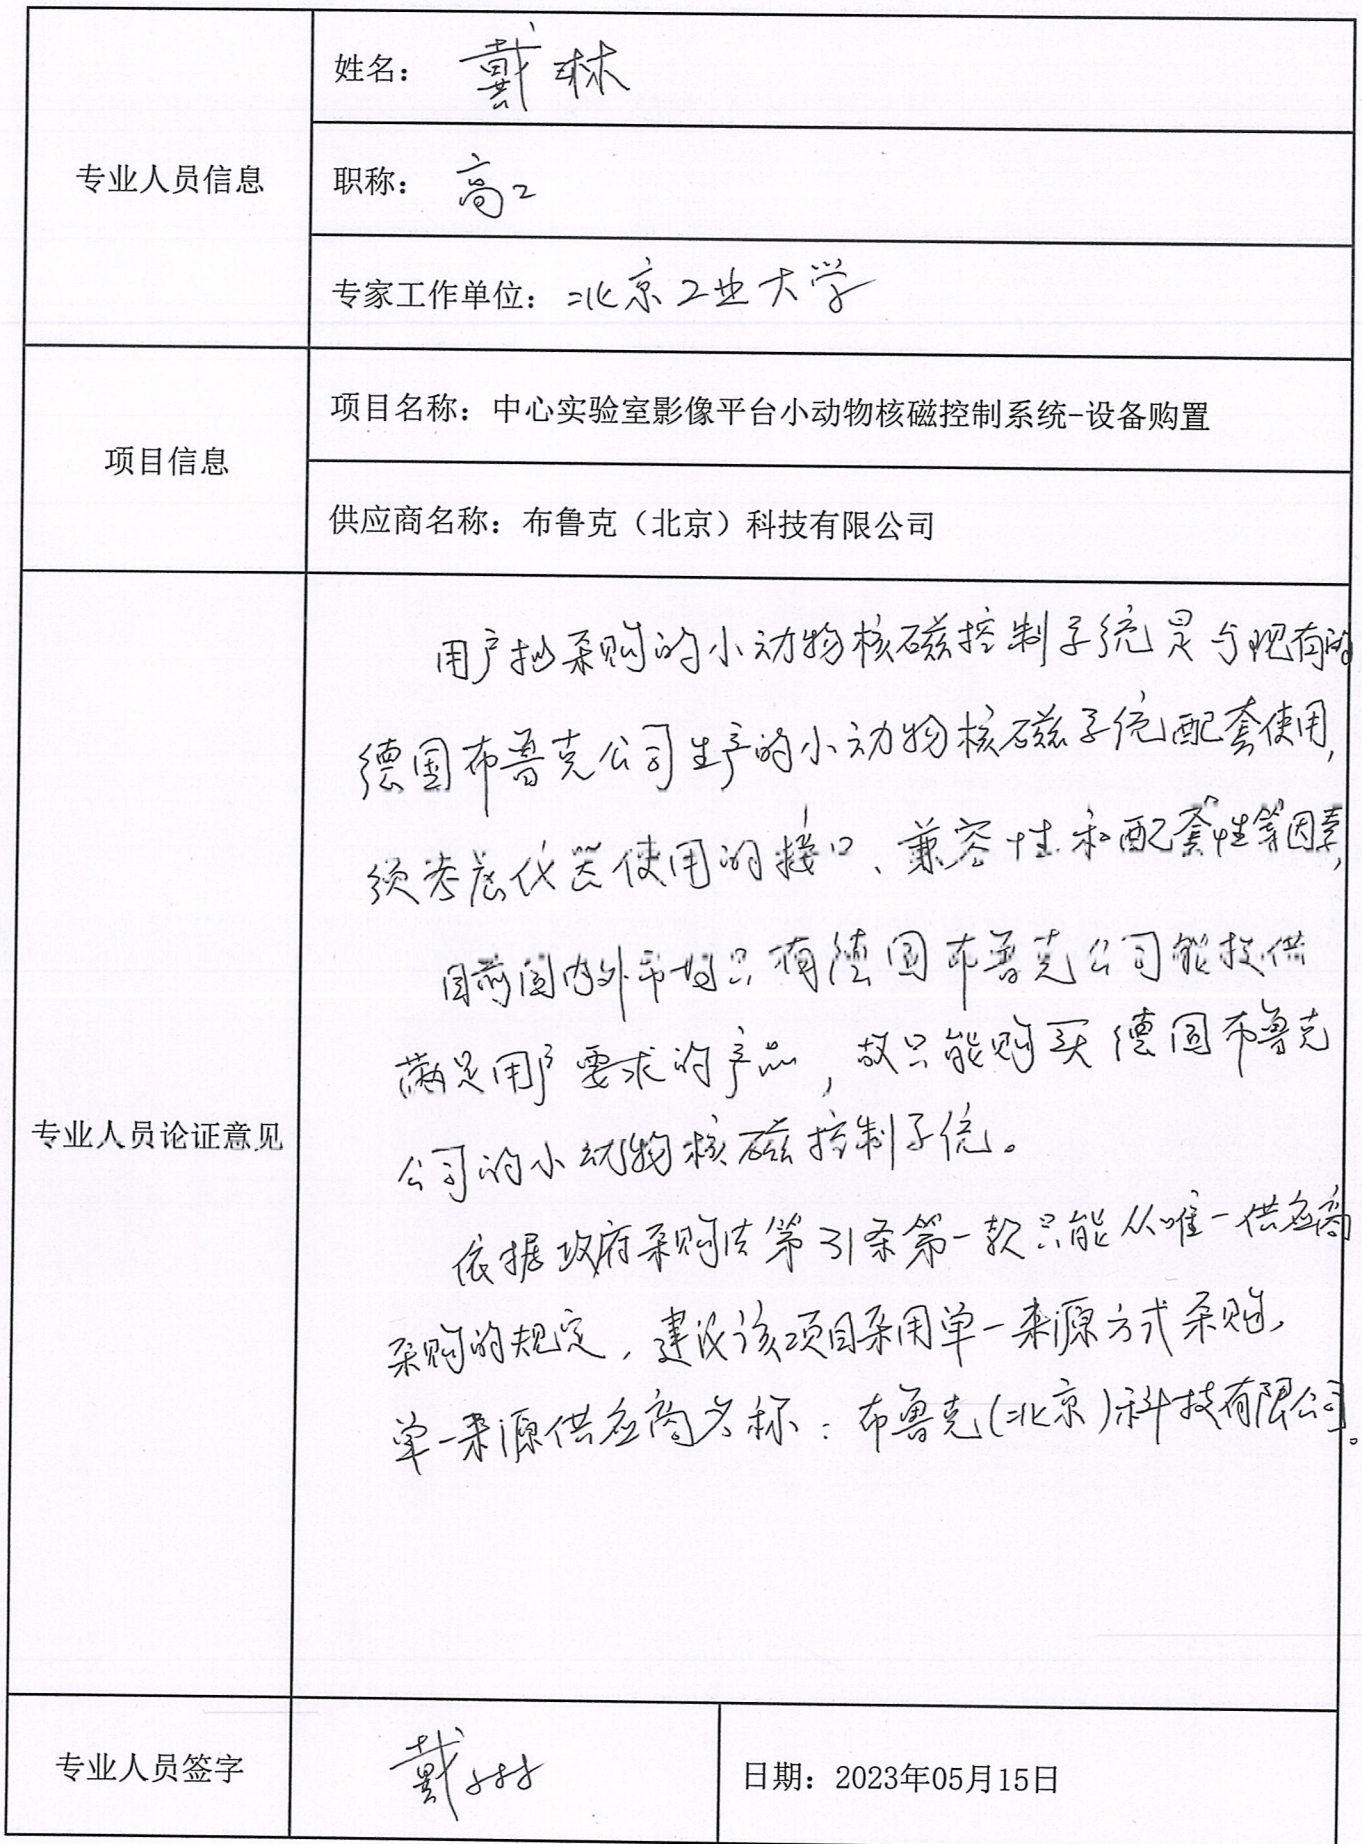 专业人员信息
姓名：戴琳
职称：高工
专家工作单位：北京工业大学
项目信息
项目名称：中心实验室影像平台小动物核磁控制系统-设备购置
供应商名称：布鲁克（北京）科技有限公司
专业人员论证意见
用户拟采购的小动物核磁控制系统是与现有的
德国布鲁克公司生产的小动物核磁系统配套使用，
须考虑仪器使用的接口、兼容性和配套性等因素，
目前国内外市场只有德国布鲁克公司能提供
满足用户要求的产品，故只能购买德国布鲁克
公司的小动物核磁控制系统。
依据政府采购法第31条第一款只能从唯一供应商
采购的规定，建议该项目采用单一来源方式采购，
单一来源供应商名称：布鲁克（北京）科技有限公司。
专业人员签字
戴琳
日期：2023年05月15日